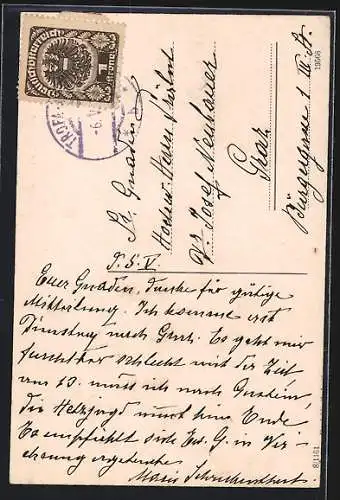 Deutschösterreich
TROFA
-6.V
Sr. Gnaden
Hochw. Herrn Prälat
Dr. Josef Neuhauer
Graz
Bürgergasse 1 III. St.
19566
P. S. V.
Euer Gnaden, danke für gütige
Mitteilung. Ich komme erst
Dienstag nach Graz. Es geht mir
furchtbar schlecht mit der Zeit
am 20. muss ich nach
die Hetzjagd nimmt kein Ende.
Es empfiehlt sich Ew. G. in Ver-
ehrung ergebenste
Marie
8/1161